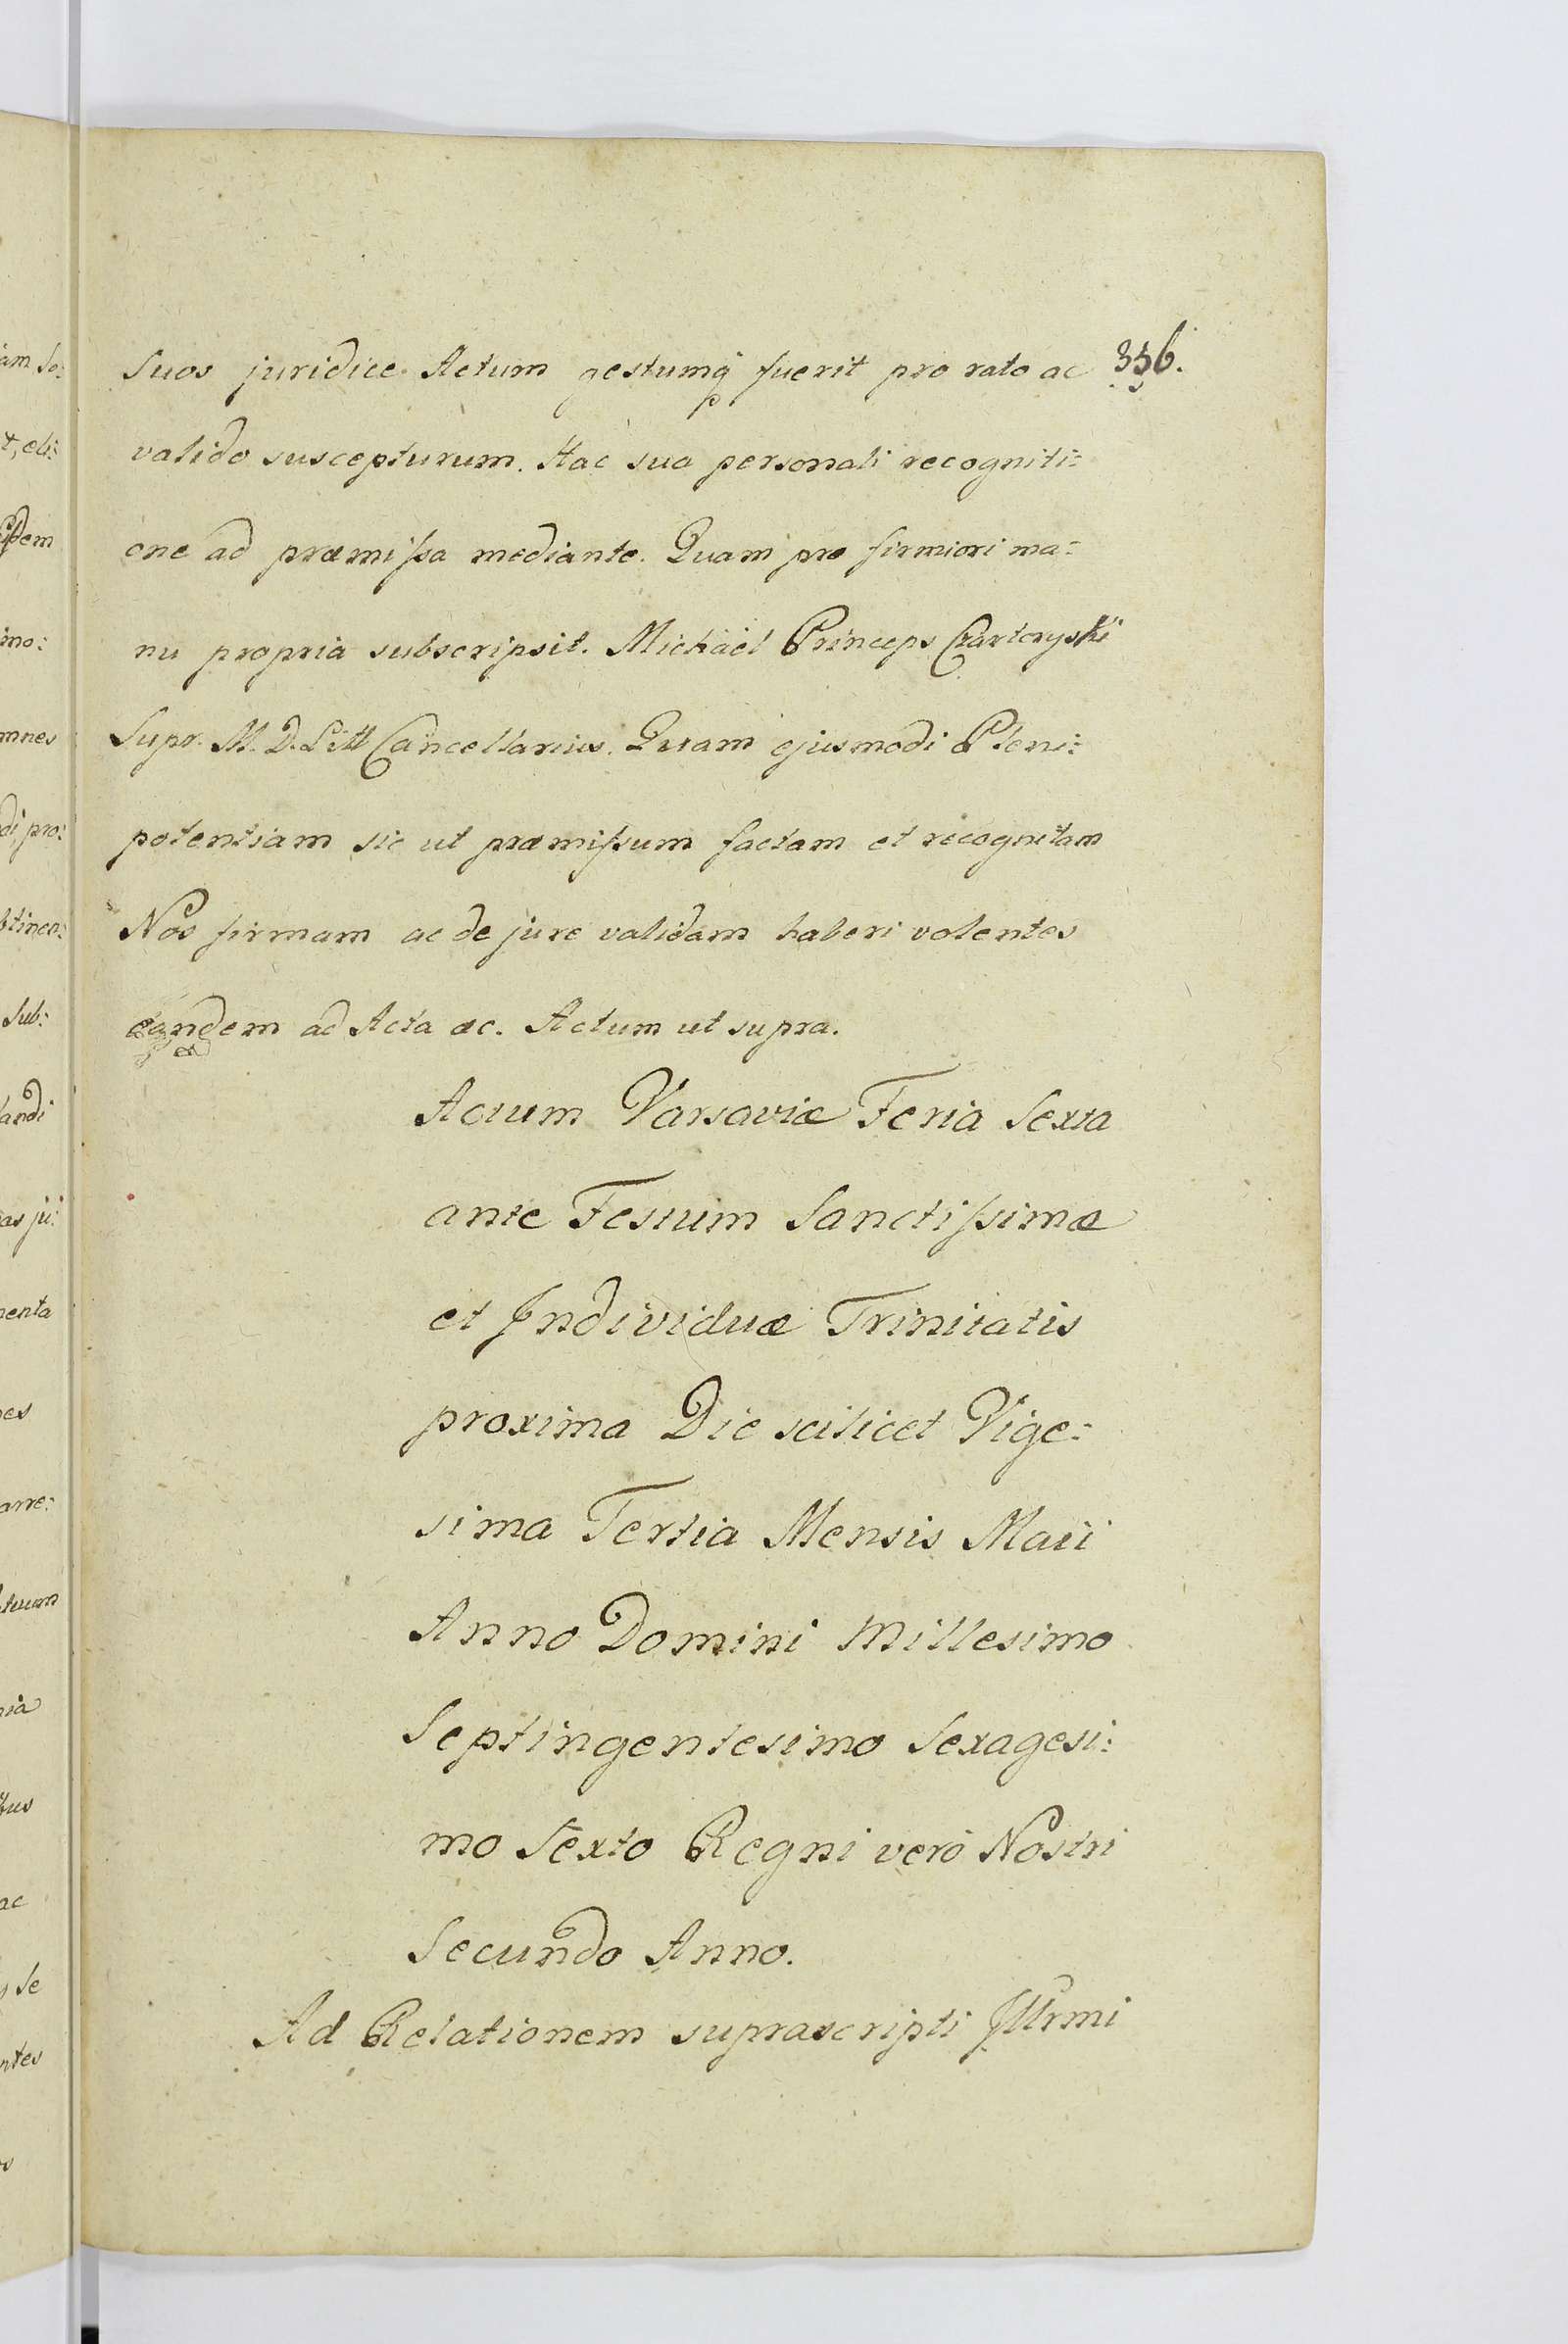 Suos juridice Actum gestumq̃ fuerit pro rato ac 356.
valido suscepturum. Hac sua personali recogniti=
one ad præmissa mediante. Quam pro firmiori ma=
nu propria subscripsit. Michaël Princeps Czartoryski
Supr. M. D. Litt Cancellarius. Quam ejusmodi Pleni=
potentiam sic ut præmissum factam et recognitam
Nos firmam ac de jure validam haberi volentes
eandem ad Acta &c. Actum ut supra.
Actum Varsaviæ Feria Sexta
ante Festum Sanctissimæ
et Individuæ Trinitatis
proxima Die scilicet Vige=
sima Tertia Mensis Maii
Anno Domini Millesimo
Septingentesimo Sexagesi=
mo Sexto Regni verò Nostri
Secundo Anno.
Ad Relationem suprascripti Illrmi
am So:
t, eli:
idem
ino:
mnes
di pro:
btinen:
Sub:
landi
as ju:
menta
nes
arre:
tuam
nia
tus
ac
Se
ntes